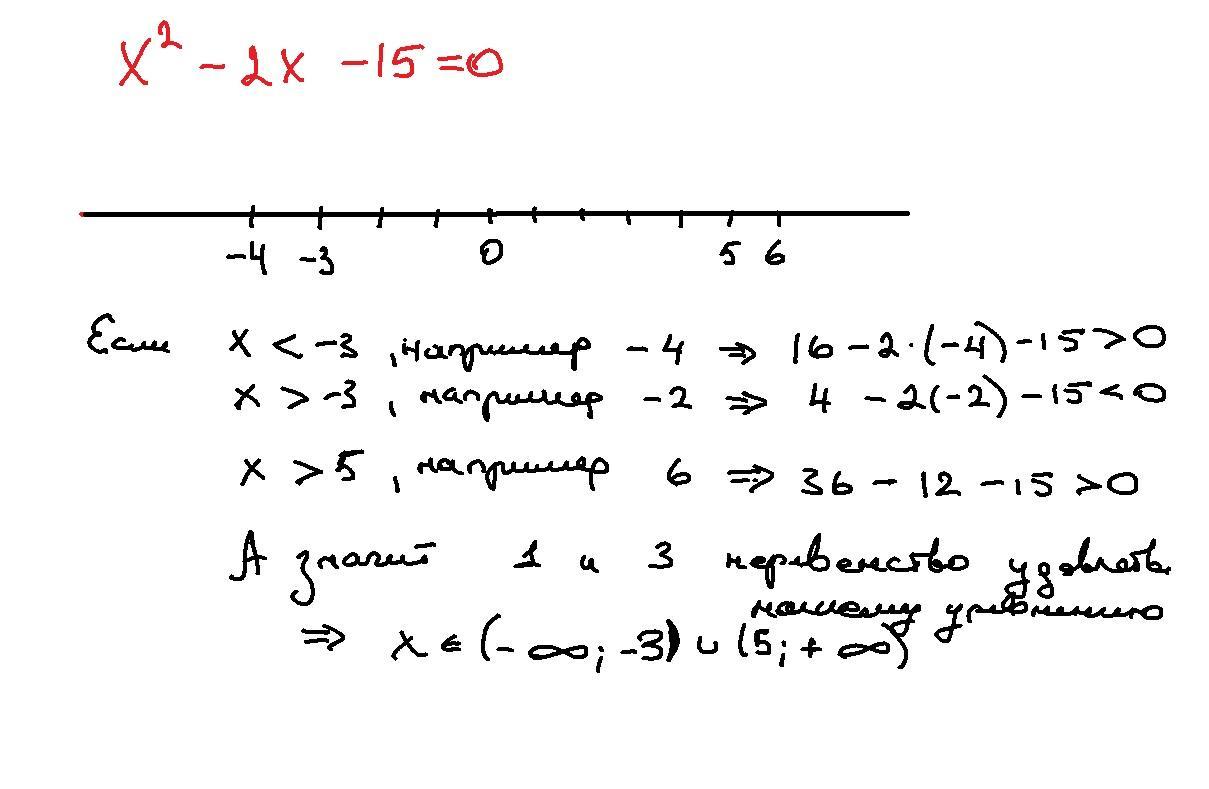 x² - 2x - 15 = 0
-4 -3 0 5 6
Если x < -3, например -4 ⇒ 16 - 2·(-4) - 15 > 0
x > -3, например -2 ⇒ 4 - 2(-2) - 15 < 0
x > 5, например 6 ⇒ 36 - 12 - 15 > 0
А значит 1 и 3 неравенство удовлетв.
нашему уравнению
⇒ x ∈ (-∞; -3) ∪ (5; +∞)